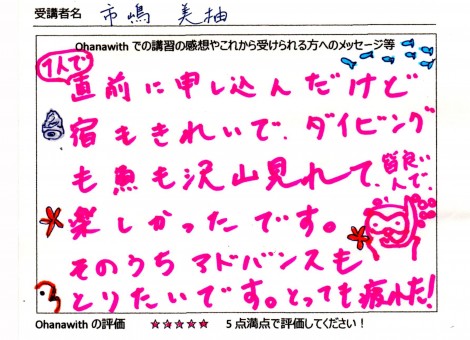 受講者名 市嶋 美柚
Ohanawith での講習の感想やこれから受けられる方へのメッセージ等
1人で
直前に申し込んだけど
宿もきれいで、ダイビング
も魚も沢山見れて、皆良い人で、
楽しかったです。
そのうちアドバンスも
とりたいです。とっても疲れた!
Ohanawith の評価 ★★★★★ 5点満点で評価してください!